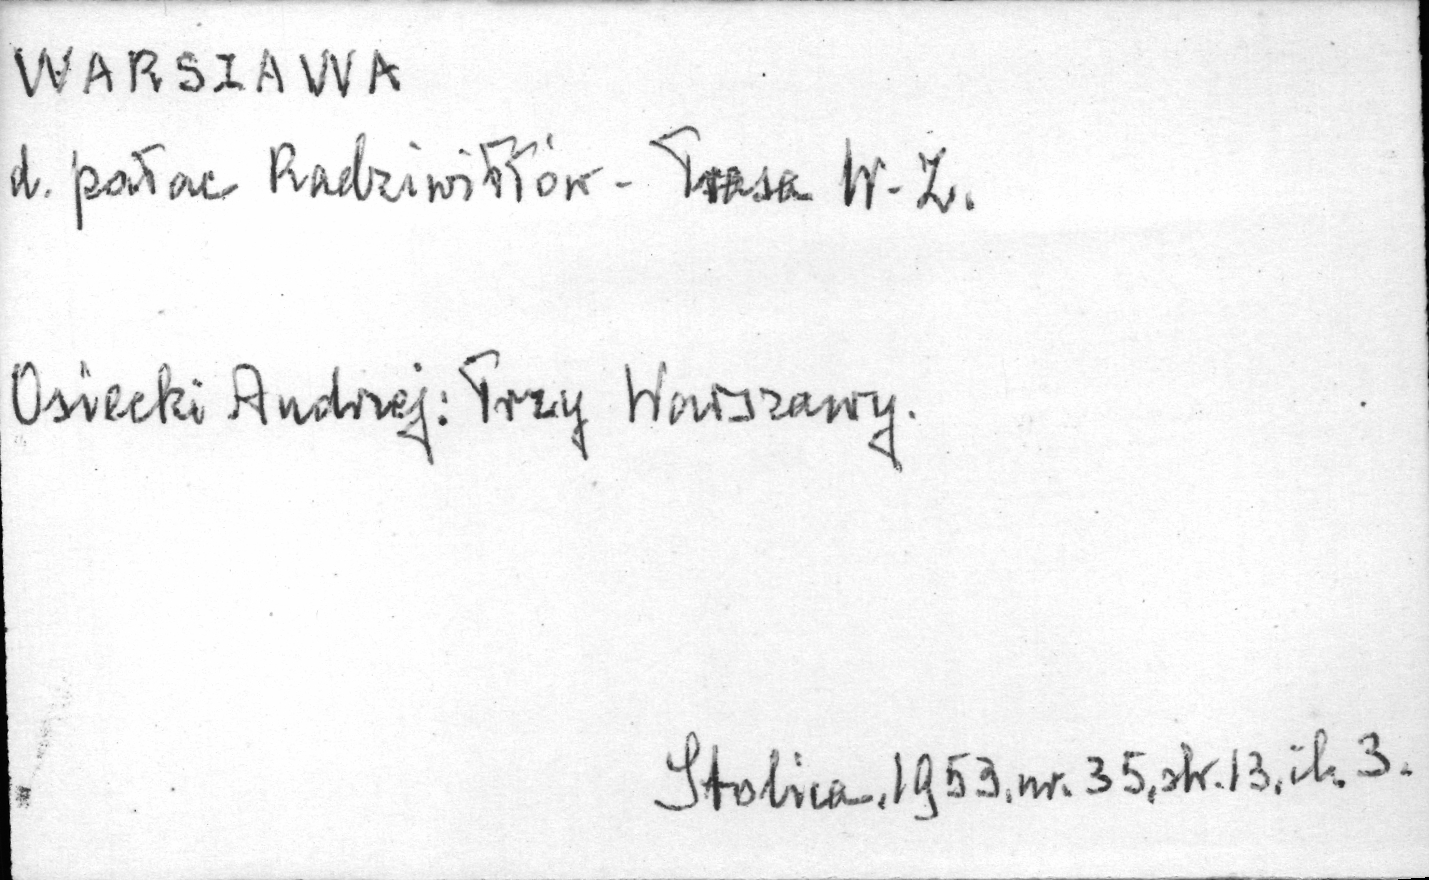 WARSZAWA
d. pałac Radziwiłłów - Trasa W-Z.
Osiecki Andrzej: Trzy Warszawy.
Stolica, 1953, nr. 35, str. 13, il. 3.